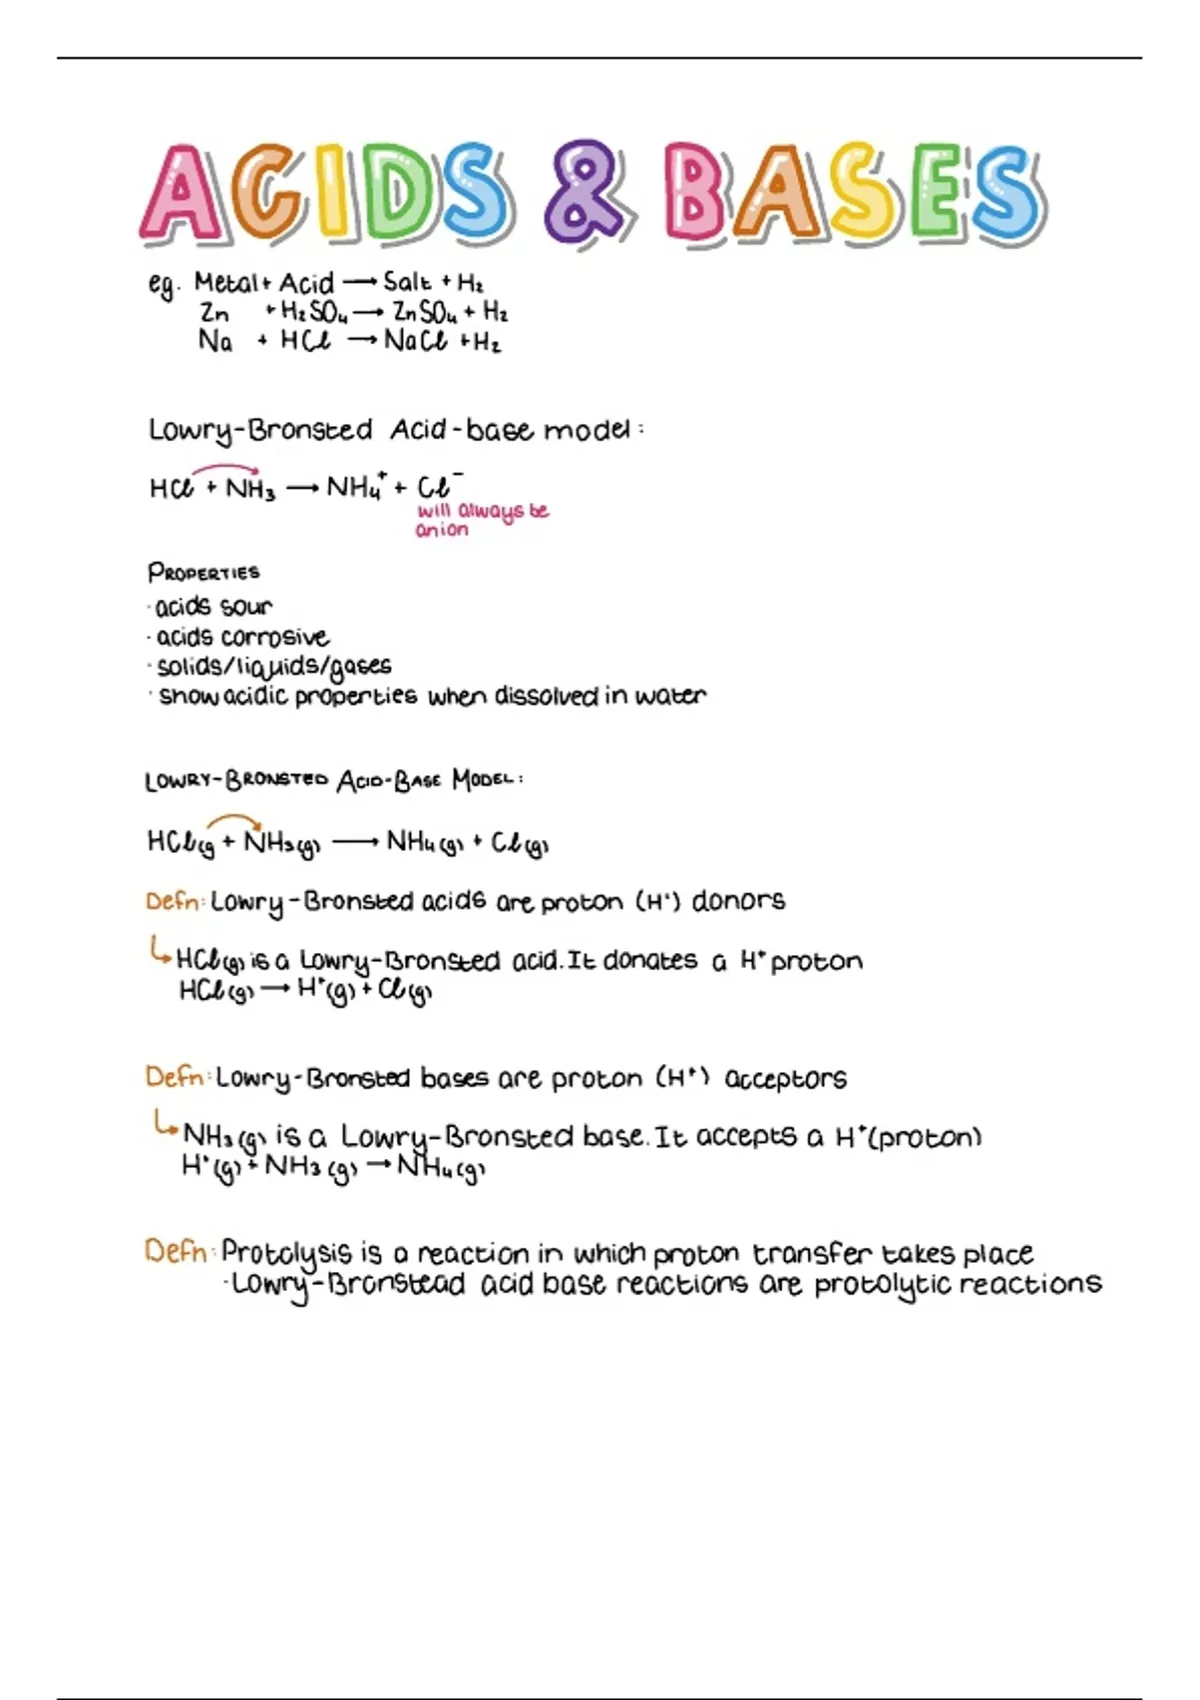 ACIDS & BASES
eg. Metal + Acid → Salt + H₂
Zn + H₂SO₄ → ZnSO₄ + H₂
Na + HCl → NaCl + H₂
Lowry-Bronsted Acid-base model:
HCl + NH₃ → NH₄⁺ + Cl⁻
will always be
anion
PROPERTIES
· acids sour
· acids corrosive
· solids/liquids/gases
· show acidic properties when dissolved in water
LOWRY-BRONSTED ACID-BASE MODEL:
HCl(g + NH₃(g) → NH₄(g) + Cl(g)
Defn: Lowry-Bronsted acids are proton (H⁺) donors
↳ HCl(g) is a Lowry-Bronsted acid. It donates a H⁺ proton
HCl(g) → H⁺(g) + Cl(g)
Defn: Lowry-Bronsted bases are proton (H⁺) acceptors
↳ NH₃(g) is a Lowry-Bronsted base. It accepts a H⁺(proton)
H⁺(g) + NH₃(g) → NH₄(g)
Defn: Protolysis is a reaction in which proton transfer takes place
· Lowry-Bronstead acid base reactions are protolytic reactions